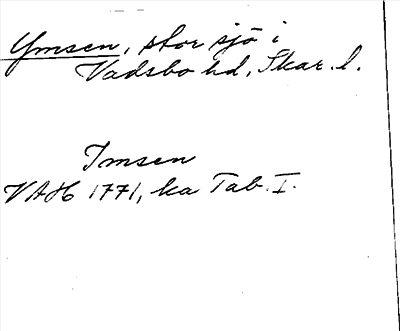 Ymsen, stor sjö i
Vadsbo hd, Skar. l.
Imsen
VAH 1771, ka Tab. I.